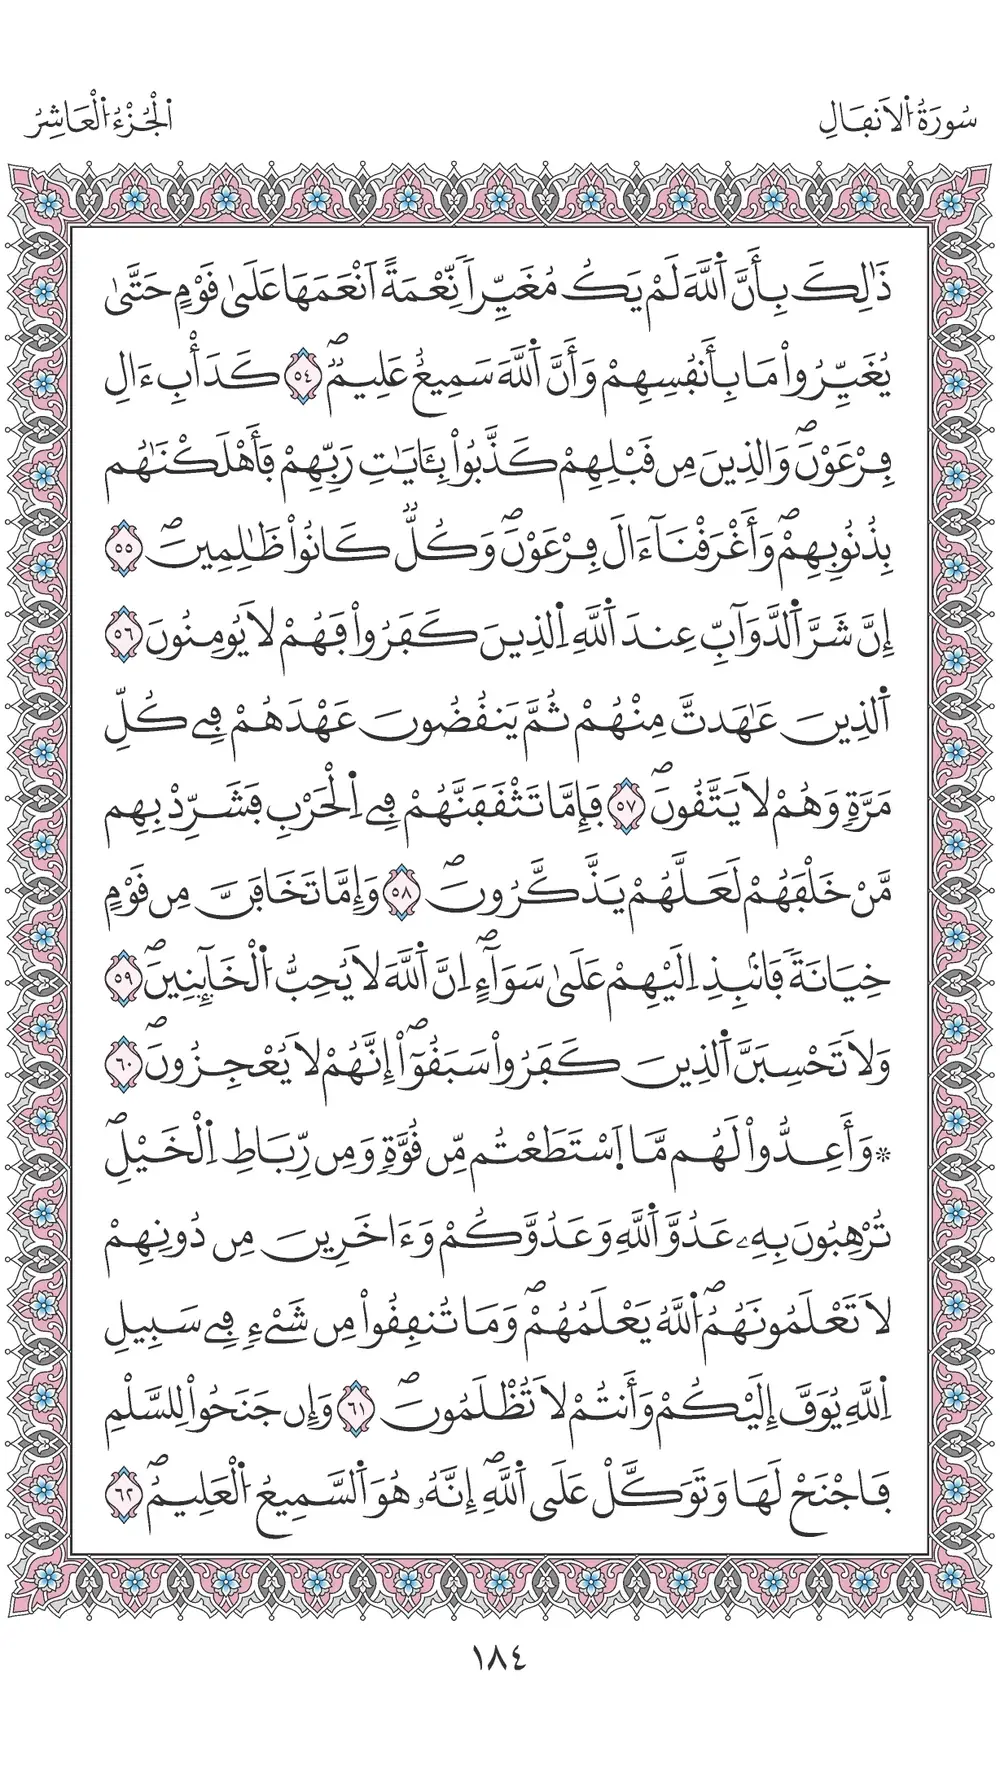 سُورَةُ اُ۬لَانفَالِ
اَ۬لْجُزْءُ اُ۬لْعَاشِرُ
ذَٰلِكَ بِأَنَّ اَ۬للَّهَ لَمْ يَكُ مُغَيِّراٗ نِّعْمَةً اَنْعَمَهَا عَلَىٰ قَوْمٍ حَتَّىٰ
يُغَيِّرُواْ مَا بِأَنفُسِهِمْ وَأَنَّ اَ۬للَّهَ سَمِيعٌ عَلِيمٞۖ ٥٤ كَدَأْبِ ءَالِ
فِرْعَوْنَۖ وَالذِينَ مِن قَبْلِهِمْ كَذَّبُواْ بِـَٔايَٰتِ رَبِّهِمْ فَأَهْلَكْنَٰهُم
بِذُنُوبِهِمْۖ وَأَغْرَقْنَآ ءَالَ فِرْعَوْنَۖ وَكُلّٞ كَانُواْ ظَٰلِمِينَۖ ٥٥
إِنَّ شَرَّ اَ۬لدَّوَآبِّ عِندَ اَ۬للَّهِ اِ۬لذِينَ كَفَرُواْ فَهُمْ لَا يُومِنُونَ ٥٦
اَ۬لذِينَ عَٰهَدتَّ مِنْهُمْ ثُمَّ يَنقُضُونَ عَهْدَهُمْ فِے كُلِّ
مَرَّةٖ وَهُمْ لَا يَتَّقُونَۖ ٥٧ فَإِمَّا تَثْقَفَنَّهُمْ فِے اِ۬لْحَرْبِ فَشَرِّدْ بِهِم
مَّنْ خَلْفَهُمْ لَعَلَّهُمْ يَذَّكَّرُونَۖ ٥٨ وَإِمَّا تَخَافَنَّ مِن قَوْمٍ
خِيَانَةٗ فَانۢبِذِ اِلَيْهِمْ عَلَىٰ سَوَآءٍۖ اِنَّ اَ۬للَّهَ لَا يُحِبُّ اُ۬لْخَآئِنِينَۖ ٥٩
وَلَا تَحْسِبَنَّ اَ۬لذِينَ كَفَرُواْ سَبَقُوٓاْۖ إِنَّهُمْ لَا يُعْجِزُونَۖ ٦٠
۞وَأَعِدُّواْ لَهُم مَّا اَ۪سْتَطَعْتُم مِّن قُوَّةٖ وَمِن رِّبَاطِ اِ۬لْخَيْلِۖ
تُرْهِبُونَ بِهِۦ عَدُوَّ اَ۬للَّهِ وَعَدُوَّكُمْ وَءَاخَرِينَ مِن دُونِهِمْ
لَا تَعْلَمُونَهُمُۖ اُ۬للَّهُ يَعْلَمُهُمْۖ وَمَا تُنفِقُواْ مِن شَےْءٖ فِے سَبِيلِ
اِ۬للَّهِ يُوَفَّ إِلَيْكُمْ وَأَنتُمْ لَا تُظْلَمُونَۖ ٦١ وَإِن جَنَحُواْ لِلسَّلْمِ
فَاجْنَحْ لَهَا وَتَوَكَّلْ عَلَى اَ۬للَّهِۖ إِنَّهُۥ هُوَ اَ۬لسَّمِيعُ اُ۬لْعَلِيمُۖ ٦٢
١٨٤